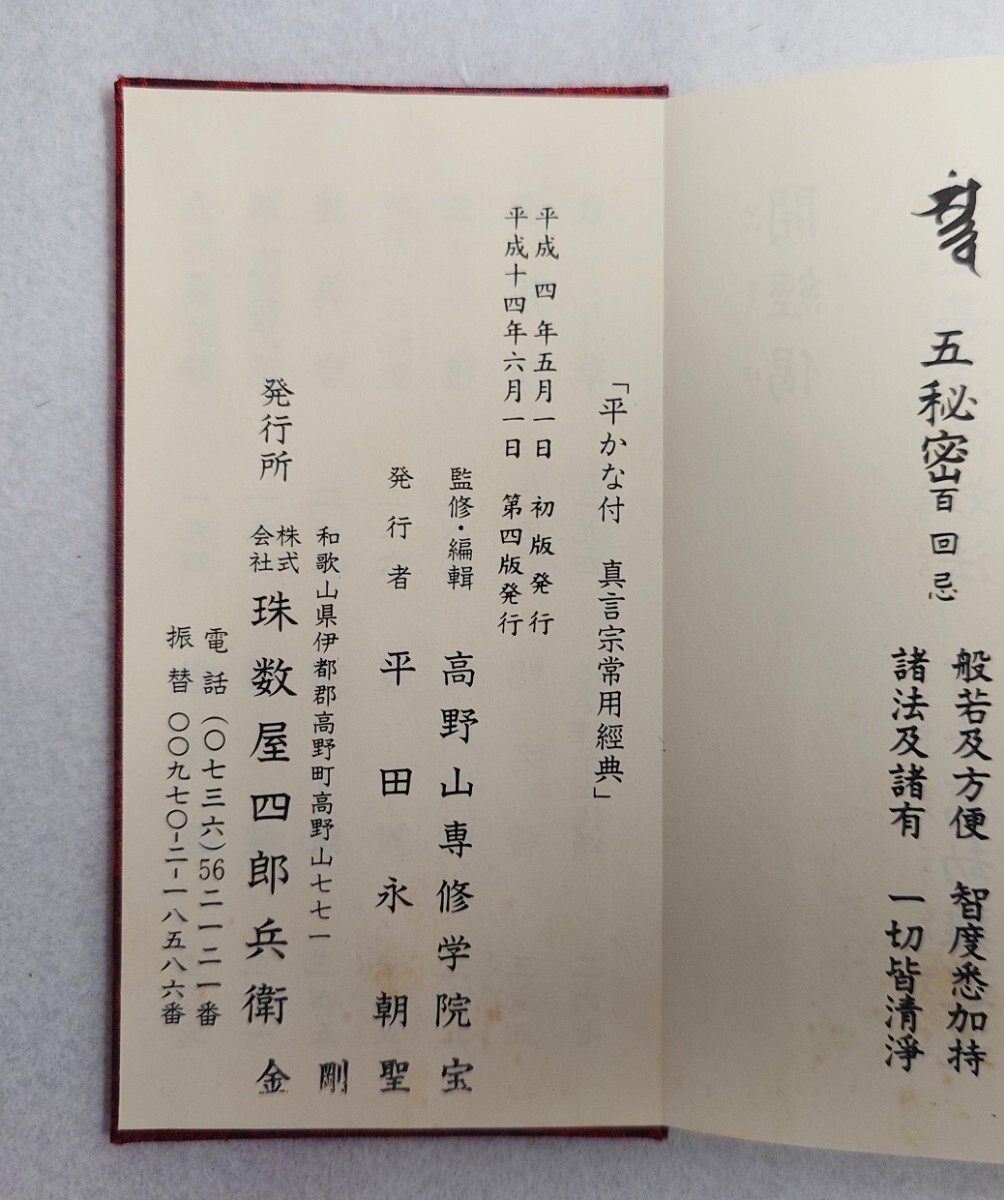 五秘密百回忌
般若及方便 智度悉加持
諸法及諸有 一切皆清淨
「平かな付 真言宗常用經典」
平成四年五月一日 初版発行
平成十四年六月一日 第四版発行
監修・編輯 高野山専修学院宝
発行者 平田永朝聖
和歌山県伊都郡高野町高野山七七一 剛
発行所 株式会社 珠数屋四郎兵衛金
電話(〇七三六)56二一二一番
振替〇〇九七〇-二-一八五八六番
開經偈